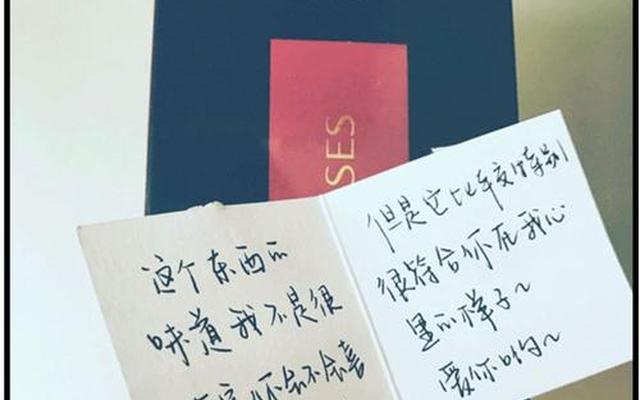 SES
这个东西的
味道我不是很
你会不会喜
但是它比较特别
很符合你在我心
里的样子~
爱你哟~